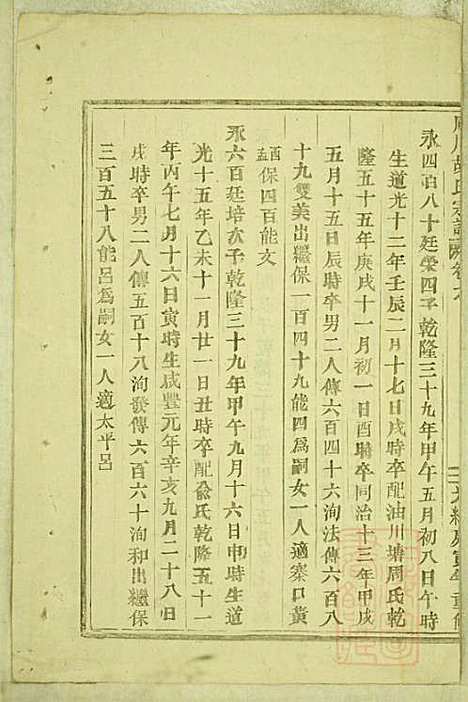 胡氏宗譜
光緒庚寅年重修
永四百八十廷榮四子乾隆三十九年甲午五月初八日午時
生道光十二年壬辰二月十七日戌時卒配油川塘周氏乾
隆五十五年庚戌十一月初一日酉時卒同治十三年甲戌
五月十五日辰時卒男二人傳六百四十六洵法傳六百八
十九雙美出繼保一百四十九能四爲嗣女一人適寨口黃
保四百能文
永六百廷培次子乾隆三十九年甲午九月十六日申時生道
光十五年乙未十一月廿一日丑時卒配兪氏乾隆五十一
年丙午七月十六日寅時生咸豐元年辛亥九月二十八日
戌時卒男二人傳五百十八洵發傳六百六十洵和出繼保
三百五十八能呂爲嗣女一人適太平呂